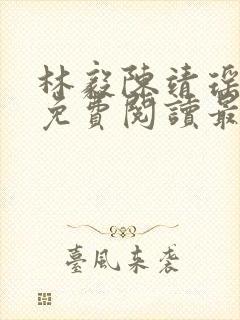 林毅陳靖瑤
免費閱讀最
臺風來袭